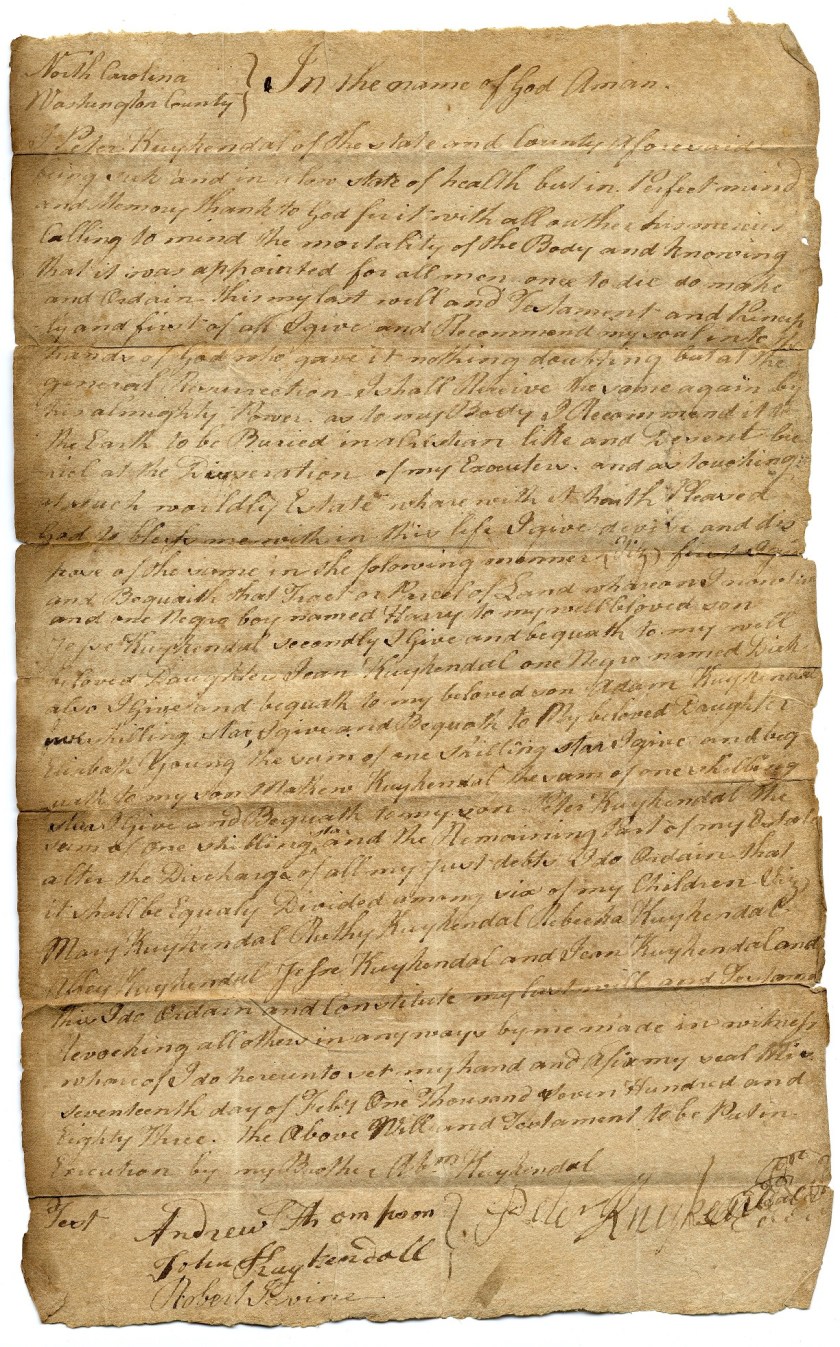 North Carolina
Washington County
In the name of God Aman.
I Peter Kuykendal of the state and County Aforesaid
being sick and in a low state of health but in Perfect mind
and Memory thank to God for it with all outher his mercies
Calling to mind the mortality of the Body and knowing
that it was appointed for all men once to die do make
and Ordain this my last will and Testament and Princip
ly and first of all I give and Recommend my soul into the
hands of God who gave it nothing doubting but at the
general Resurrection I shall Receive the same again by
his almighty Power. as to my Body I Recommend it to
the Earth to be Buried in a like and Desent bu
riel at the of my Executers. and as touching
such worldly Estate whare with it haith Pleased
God to bless me with in this life I give devise and dis
pose of the same in the folowing manner (Viz) first I give
and Bequaith that Tract or Parcel of Land whareon I now live
and one Negro boy named Harry to my well beloved son
Jesse Kuykendal secondly I Give and bequath to my well
beloved Daughter Jean Kuykendal one Negro named Dick
also I Give and bequath to my beloved son Adam Kuykendal
shilling star, I give and Bequath to My beloved Daughter
Elisabath Young the sum of one shilling star I give and beq
uath to my son Mathew Kuykendal the sum of one shilling
star I Give and Bequath to my son Peter Kuykendal the
sum of one shilling star and the Remaining Part of my Estate
after the Discharge of all my Just debts I do Ordain that
it shall be Equaly Divided among six of my Children Viz)
Mary Kuykendal Ruthy Kuykendal Rebecka Kuykendal
Abey Kuykendal Jesse Kuykendal and Jean Kuykendal and
this I do Ordain and Constitute my last will and Testama
Revocking all others in any ways by me made in witness
whareof I do hereunto set my hand and afix my seal this
seventeenth day of Feby One Thousand Seven Hundred and
Eighty Three. the Above Will and Testament to be Put in
Execution by my Brother Abm Kuykendal
Test Andrew Thompson
Peter Kuykendal
John Kuykendall
Robert Irvine